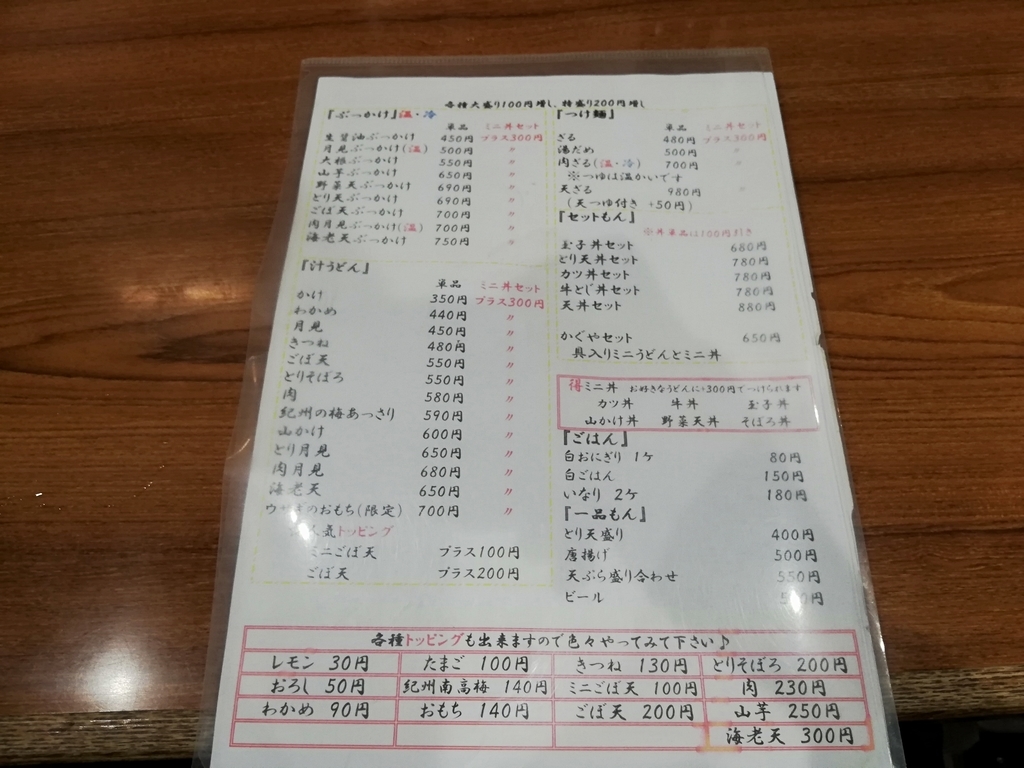 各種大盛り100円増し、特盛り200円増し
『ぶっかけ』温・冷
単品 ミニ丼セット
生醤油ぶっかけ 450円 プラス300円
月見ぶっかけ(温) 500円 〃
大根ぶっかけ 550円 〃
山芋ぶっかけ 650円 〃
野菜天ぶっかけ 690円 〃
とり天ぶっかけ 690円 〃
ごぼ天ぶっかけ 700円 〃
肉月見ぶっかけ(温) 700円 〃
海老天ぶっかけ 750円 〃
『汁うどん』
単品 ミニ丼セット
かけ 350円 プラス300円
わかめ 440円 〃
月見 450円 〃
きつね 480円 〃
ごぼ天 550円 〃
とりそぼろ 550円 〃
肉 580円 〃
紀州の梅あっさり 590円 〃
山かけ 600円 〃
とり月見 650円 〃
肉月見 680円 〃
海老天 650円 〃
ウサギのおもち(限定) 700円 〃
人気トッピング
ミニごぼ天 プラス100円
ごぼ天 プラス200円
『つけ麺』
単品 ミニ丼セット
ざる 480円 プラス300円
湯だめ 500円 〃
肉ざる(温・冷) 700円 〃
※つゆは温かいです
天ざる 980円 〃
(天つゆ付き +50円)
『セットもん』
※丼単品は100円引き
玉子丼セット 680円
とり天丼セット 780円
カツ丼セット 780円
牛とじ丼セット 780円
天丼セット 880円
かぐやセット 650円
具入りミニうどんとミニ丼
得ミニ丼 お好きなうどんに+300円でつけられます
カツ丼 牛丼 玉子丼
山かけ丼 野菜天丼 そぼろ丼
『ごはん』
白おにぎり 1ケ 80円
白ごはん 150円
いなり 2ケ 180円
『一品もん』
とり天盛り 400円
唐揚げ 500円
天ぷら盛り合わせ 550円
ビール
各種トッピングも出来ますので色々やってみて下さい♪
レモン 30円 たまご 100円 きつね 130円 とりそぼろ 200円
おろし 50円 紀州南高梅 140円 ミニごぼ天 100円 肉 230円
わかめ 90円 おもち 140円 ごぼ天 200円 山芋 250円
海老天 300円